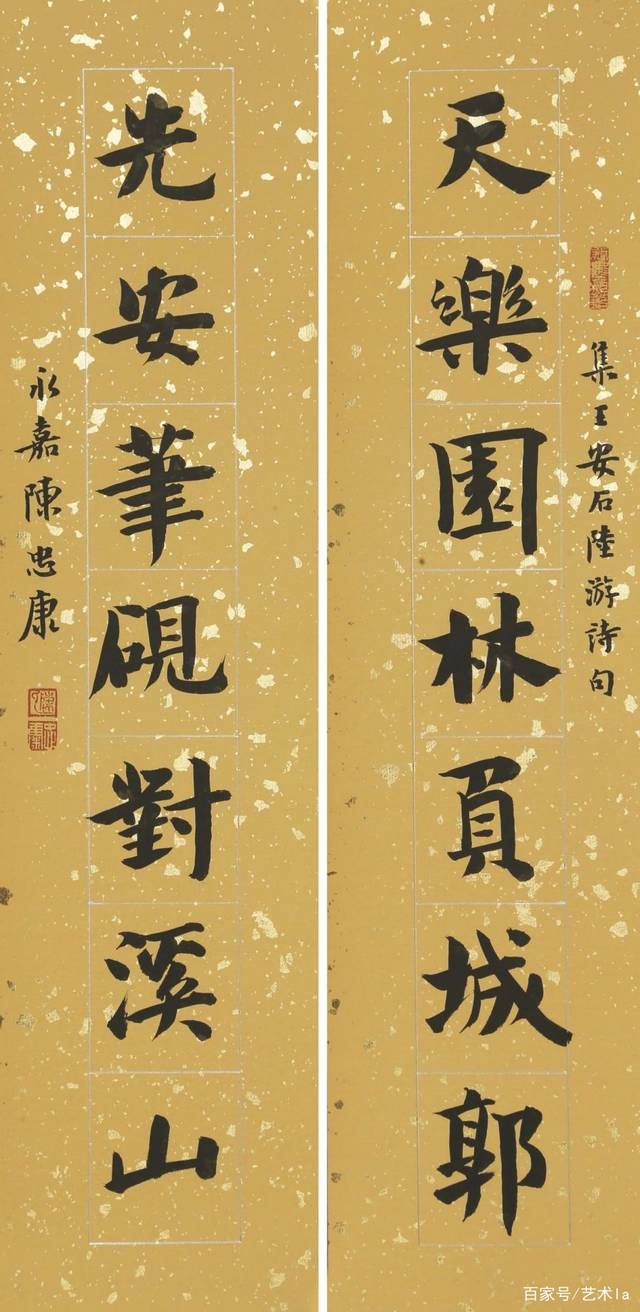 集王安石陸游詩句
天樂園林負城郭
先安筆硯對溪山
永嘉陳忠康
百家号/艺术la